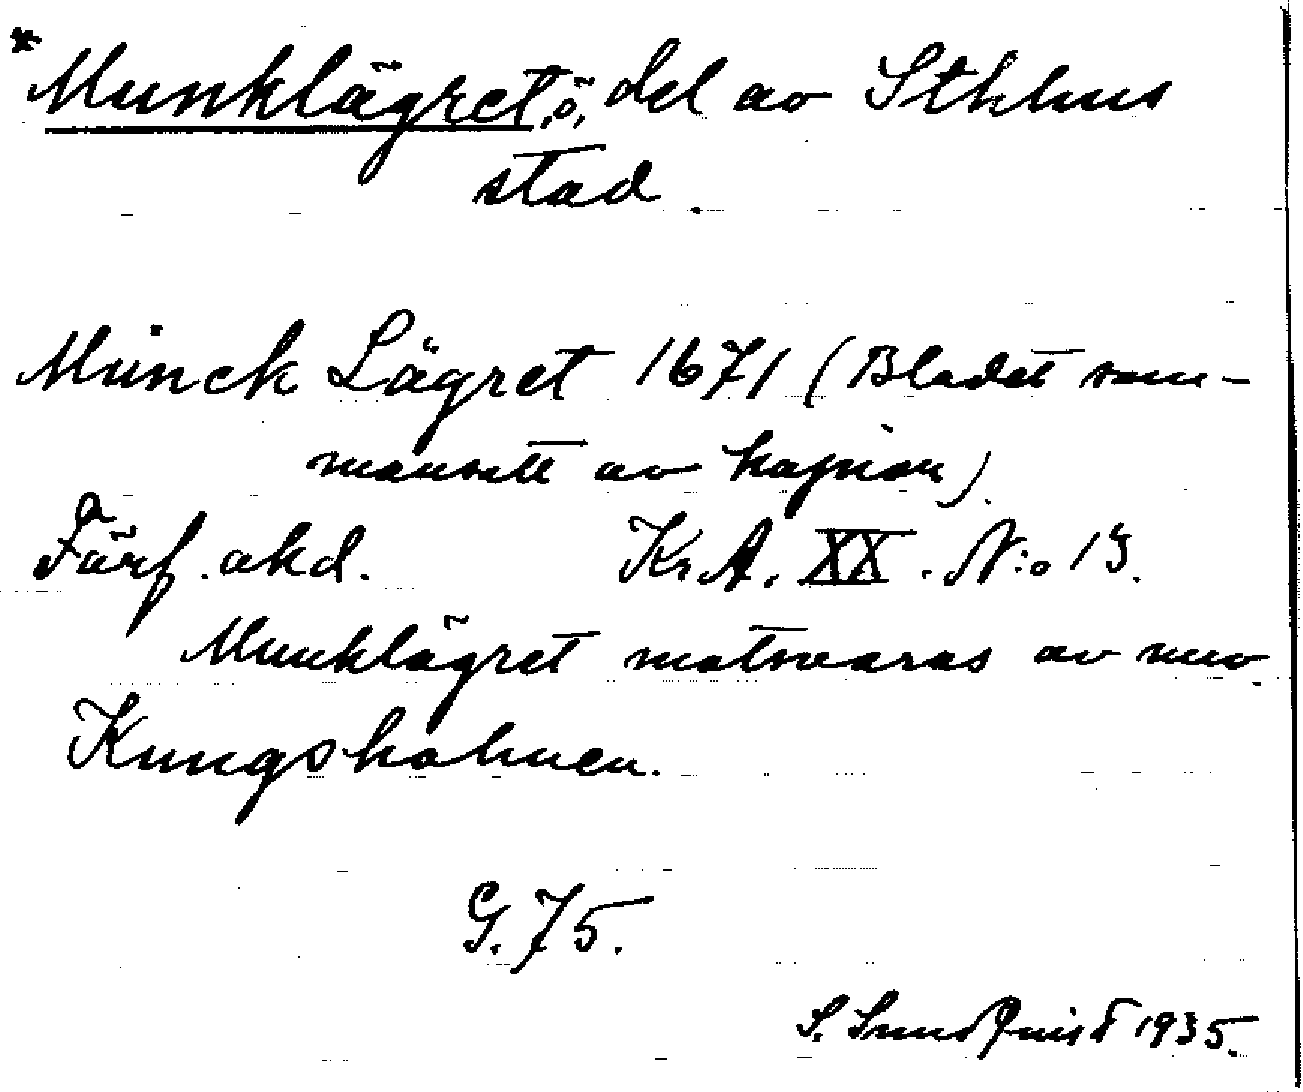 *Munklägret, ö, del av Sthlms
stad.
Munck Lägret 1671 (Bladet sam-
mansatt av kopior).
Färf. akd. Kr.A. XX. N:o 13.
Munklägret motsvaras av nuv.
Kungsholmen.
G. 75.
S. Sundquist 1935.